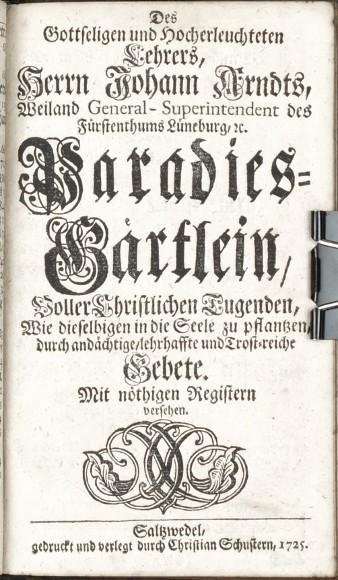 Des
Gottseligen und Hocherleuchteten
Lehrers,
Herrn Johann Arndts,
Weiland General-Superintendent des
Fürstenthums Lüneburg, ꝛc.
Paradies-
Gärtlein/
Voller Christlichen Tugenden,
Wie dieselbigen in die Seele zu pflantzen,
durch andächtige/lehrhaffte und Trost-reiche
Gebete.
Mit nöthigen Registern
versehen.
Saltzwedel,
gedruckt und verlegt durch Christian Schustern, 1725.